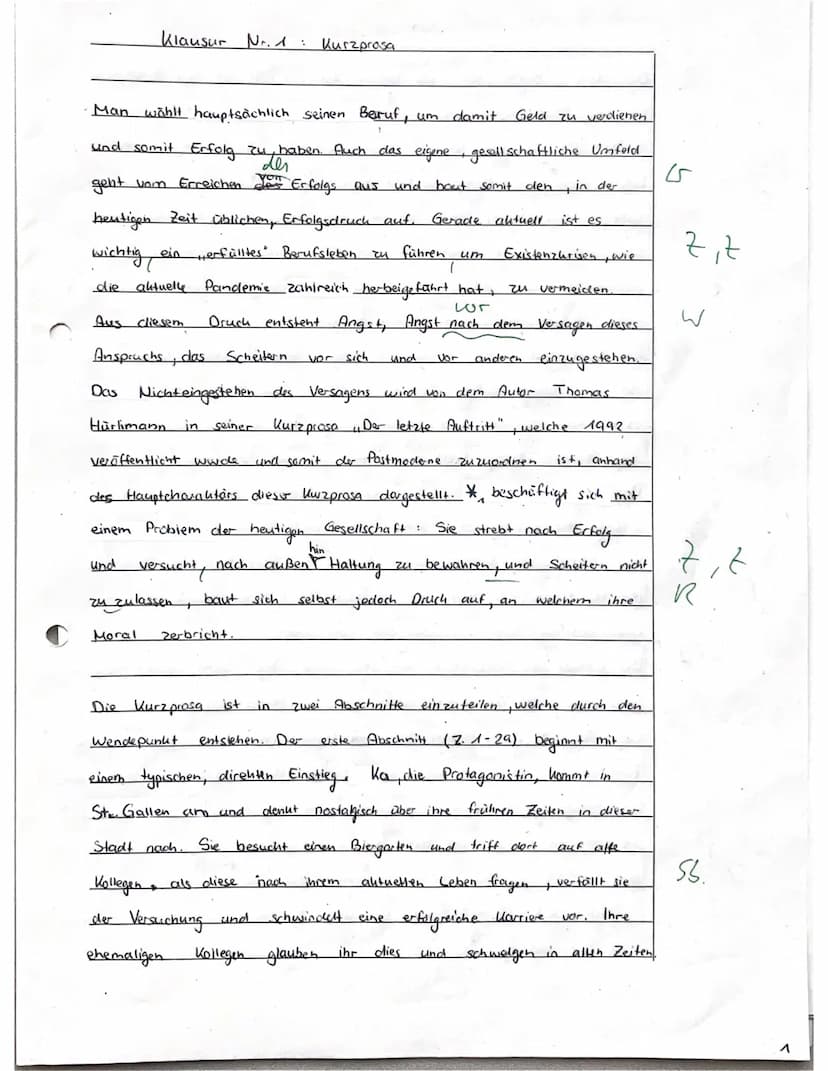 Klausur Nr. 1 : Kurzprosa
Man wählt hauptsächlich seinen Beruf, um damit Geld zu verdienen
und somit Erfolg zu haben. Auch das eigene, gesellschaftliche Umfeld
den
geht vom Erreichen von Erfolgs aus und baut somit den, in der
G
heutigen Zeit üblichen, Erfolgsdruck auf. Gerade aktuell ist es
wichtig, ein „erfülltes" Berufsleben zu führen um Existenzkrisen, wie
Z, Z
die aktuelle Pandemie zahlreich herbeigeführt hat, zu vermeiden.
vor
Aus diesem Druck entsteht Angst, Angst nach dem Versagen dieses
W
Anspruchs, das Scheitern vor sich und vor anderen einzugestehen.
Das Nichteingestehen des Versagens wird von dem Autor Thomas
Hürlimann in seiner Kurzprosa „Der letzte Auftritt", welche 1992
veröffentlicht wurde und somit der Postmoderne zuzuordnen ist, anhand
des Hauptcharaktärs dieser Kurzprosa dargestellt. *, beschäftigt sich mit
einem Problem der heutigen Gesellschaft : Sie strebt nach Erfolg
hin
und versucht, nach außen Haltung zu bewahren, und Scheitern nicht
Z, Z
zu zulassen, baut sich selbst jedoch Druck auf, an welchem ihre
R
Moral zerbricht.
Die Kurzprosa ist in zwei Abschnitte einzuteilen, welche durch den
Wendepunkt entstehen. Der erste Abschnitt (Z. 1-29) beginnt mit
einem typischen, direkten Einstieg. Ka, die Protagonistin, kommt in
St. Gallen an und denkt nostalgisch über ihre frühren Zeiten in dieser
Stadt nach. Sie besucht einen Biergarten und triff dort auf alte
Kollegen, als diese nach ihrem aktuellen Leben fragen, verfällt sie
Sb.
der Versuchung und schwindelt eine erfolgreiche Karriere vor. Ihre
ehemaligen Kollegen glauben ihr dies und schwelgen in alten Zeiten.
1